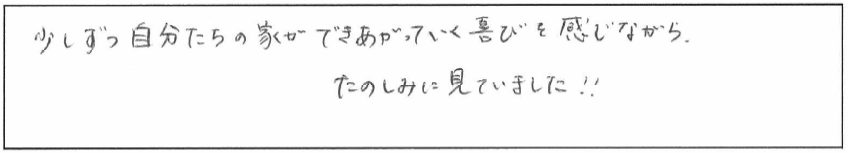 少しずつ自分たちの家ができあがっていく喜びを感じながら、
たのしみに見ていました!!